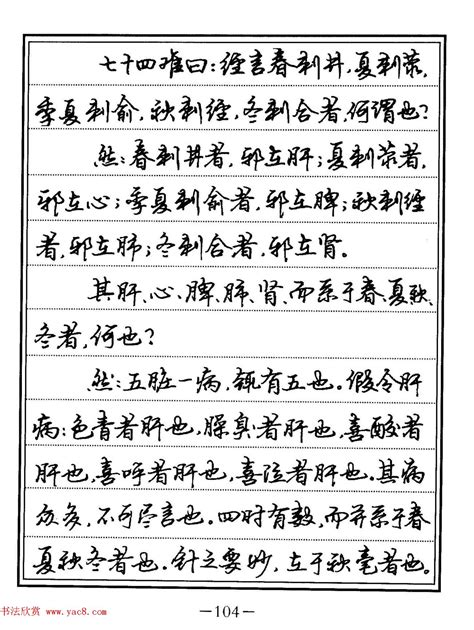 七十四难曰：经言春刺井，夏刺荥，
季夏刺俞，秋刺经，冬刺合者，何谓也？
然：春刺井者，邪在肝；夏刺荥者，
邪在心；季夏刺俞者，邪在脾；秋刺经
者，邪在肺；冬刺合者，邪在肾。
其肝、心、脾、肺、肾，而系于春、夏、秋、
冬者，何也？
然：五脏一病，辄有五也。假令肝
病：色青者肝也，臊臭者肝也，喜酸者
肝也，喜呼者肝也，喜泣者肝也。其病
众多，不可尽言也。四时有数，而并系于春
夏秋冬者也。针之要妙，在于秋毫者也。
书法欣赏 www.yac8.com
—104—